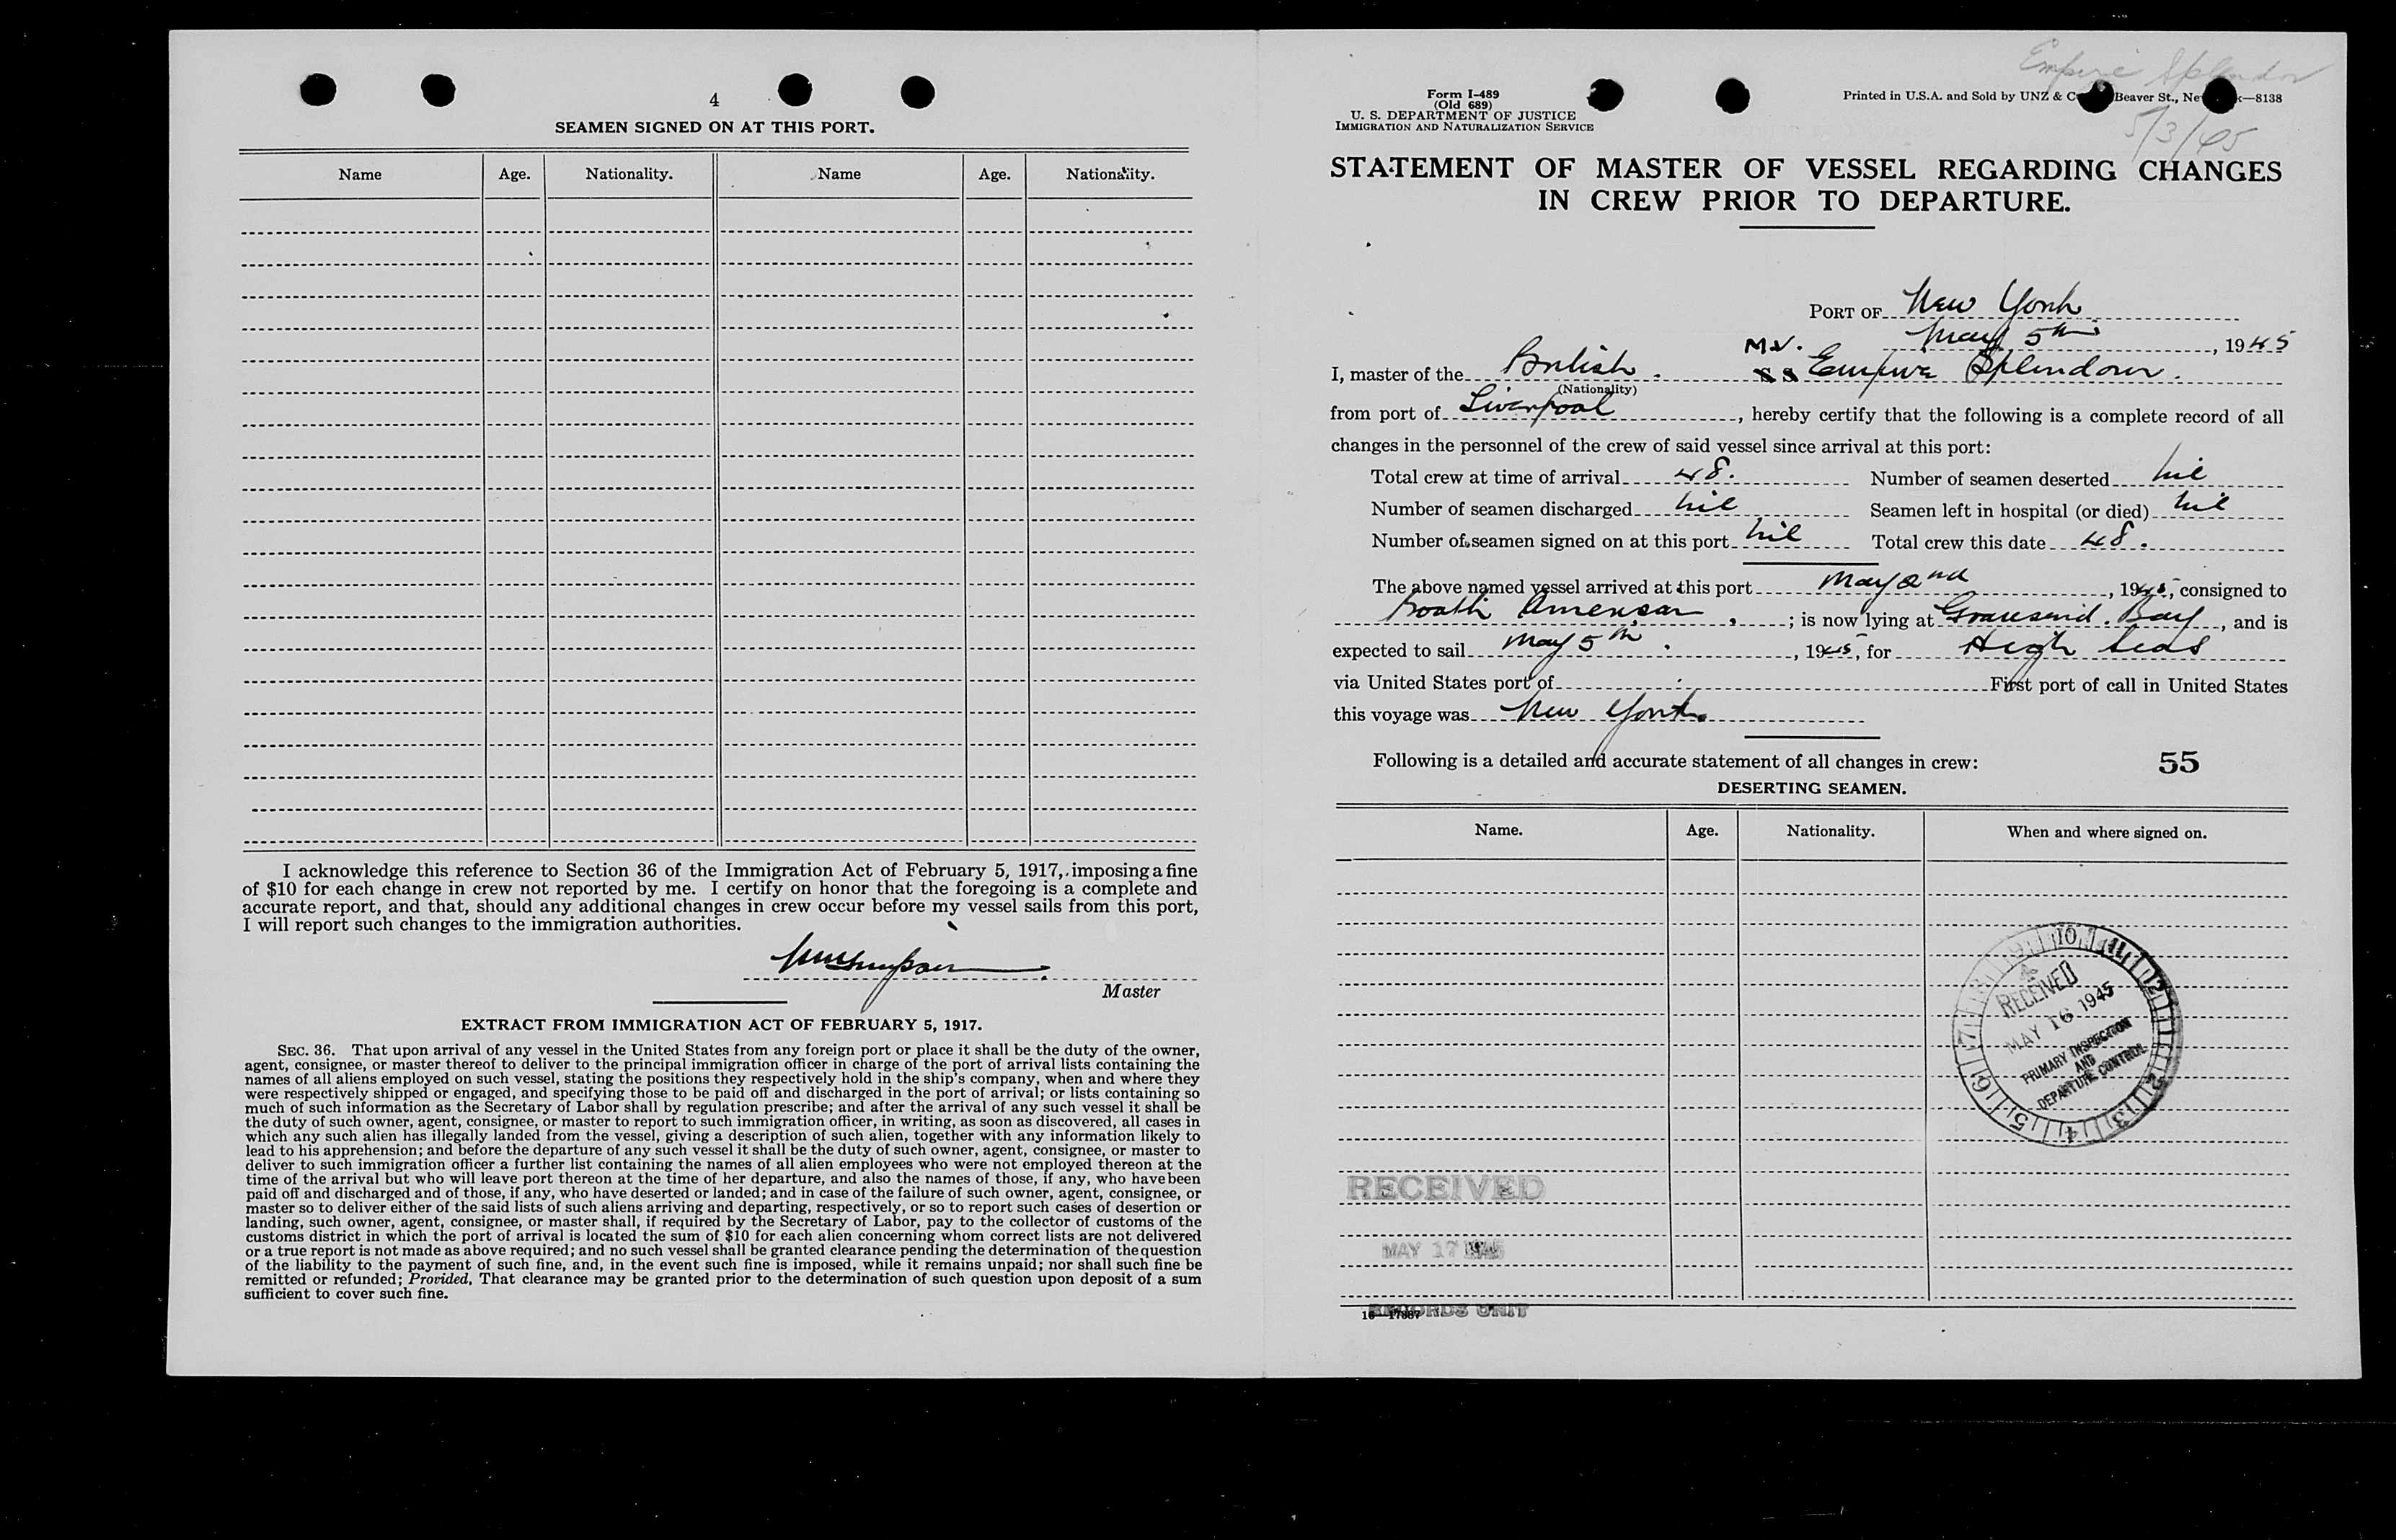 4
SEAMEN SIGNED ON AT THIS PORT.
Name Age. Nationality. Name Age. Nationality.
I acknowledge this reference to Section 36 of the Immigration Act of February 5, 1917, imposing a fine
of $10 for each change in crew not reported by me. I certify on honor that the foregoing is a complete and
accurate report, and that, should any additional changes in crew occur before my vessel sails from this port,
I will report such changes to the immigration authorities.
Master
EXTRACT FROM IMMIGRATION ACT OF FEBRUARY 5, 1917.
SEC. 36. That upon arrival of any vessel in the United States from any foreign port or place it shall be the duty of the owner,
agent, consignee, or master thereof to deliver to the principal immigration officer in charge of the port of arrival lists containing the
names of all aliens employed on such vessel, stating the positions they respectively hold in the ship's company, when and where they
were respectively shipped or engaged, and specifying those to be paid off and discharged in the port of arrival; or lists containing so
much of such information as the Secretary of Labor shall by regulation prescribe; and after the arrival of any such vessel it shall be
the duty of such owner, agent, consignee, or master to report to such immigration officer, in writing, as soon as discovered, all cases in
which any such alien has illegally landed from the vessel, giving a description of such alien, together with any information likely to
lead to his apprehension; and before the departure of any such vessel it shall be the duty of such owner, agent, consignee, or master to
deliver to such immigration officer a further list containing the names of all alien employees who were not employed thereon at the
time of the arrival but who will leave port thereon at the time of her departure, and also the names of those, if any, who have been
paid off and discharged and of those, if any, who have deserted or landed; and in case of the failure of such owner, agent, consignee, or
master so to deliver either of the said lists of such aliens arriving and departing, respectively, or so to report such cases of desertion or
landing, such owner, agent, consignee, or master shall, if required by the Secretary of Labor, pay to the collector of customs of the
customs district in which the port of arrival is located the sum of $10 for each alien concerning whom correct lists are not delivered
or a true report is not made as above required; and no such vessel shall be granted clearance pending the determination of the question
of the liability to the payment of such fine, and, in the event such fine is imposed, while it remains unpaid; nor shall such fine be
remitted or refunded; Provided, That clearance may be granted prior to the determination of such question upon deposit of a sum
sufficient to cover such fine.
Empire Splendor
5/3/45
Form I-489
(Old 689)
U. S. DEPARTMENT OF JUSTICE
IMMIGRATION AND NATURALIZATION SERVICE
Printed in U.S.A. and Sold by UNZ & C Beaver St., Ne k—8138
STATEMENT OF MASTER OF VESSEL REGARDING CHANGES
IN CREW PRIOR TO DEPARTURE.
PORT OF New York
May 5th, 1945
I, master of the British. M.V. S S Empire Splendour.
(Nationality)
from port of Liverpool, hereby certify that the following is a complete record of all
changes in the personnel of the crew of said vessel since arrival at this port:
Total crew at time of arrival 48. Number of seamen deserted nil
Number of seamen discharged nil Seamen left in hospital (or died) nil
Number of seamen signed on at this port nil Total crew this date 48.
The above named vessel arrived at this port May 2nd, 1945, consigned to
; is now lying at Gravesend. Bay, and is
expected to sail May 5th., 1945, for High Seas
via United States port of First port of call in United States
this voyage was New York
Following is a detailed and accurate statement of all changes in crew: 55
DESERTING SEAMEN.
Name. Age. Nationality. When and where signed on.
9 10 11 12 2 3 4 5 6 7 8
RECEIVED
MAY 16 1945
PRIMARY INSPECTION
AND
DEPARTURE CONTROL
RECEIVED
MAY 17 1945
RECORDS UNIT
16—17887